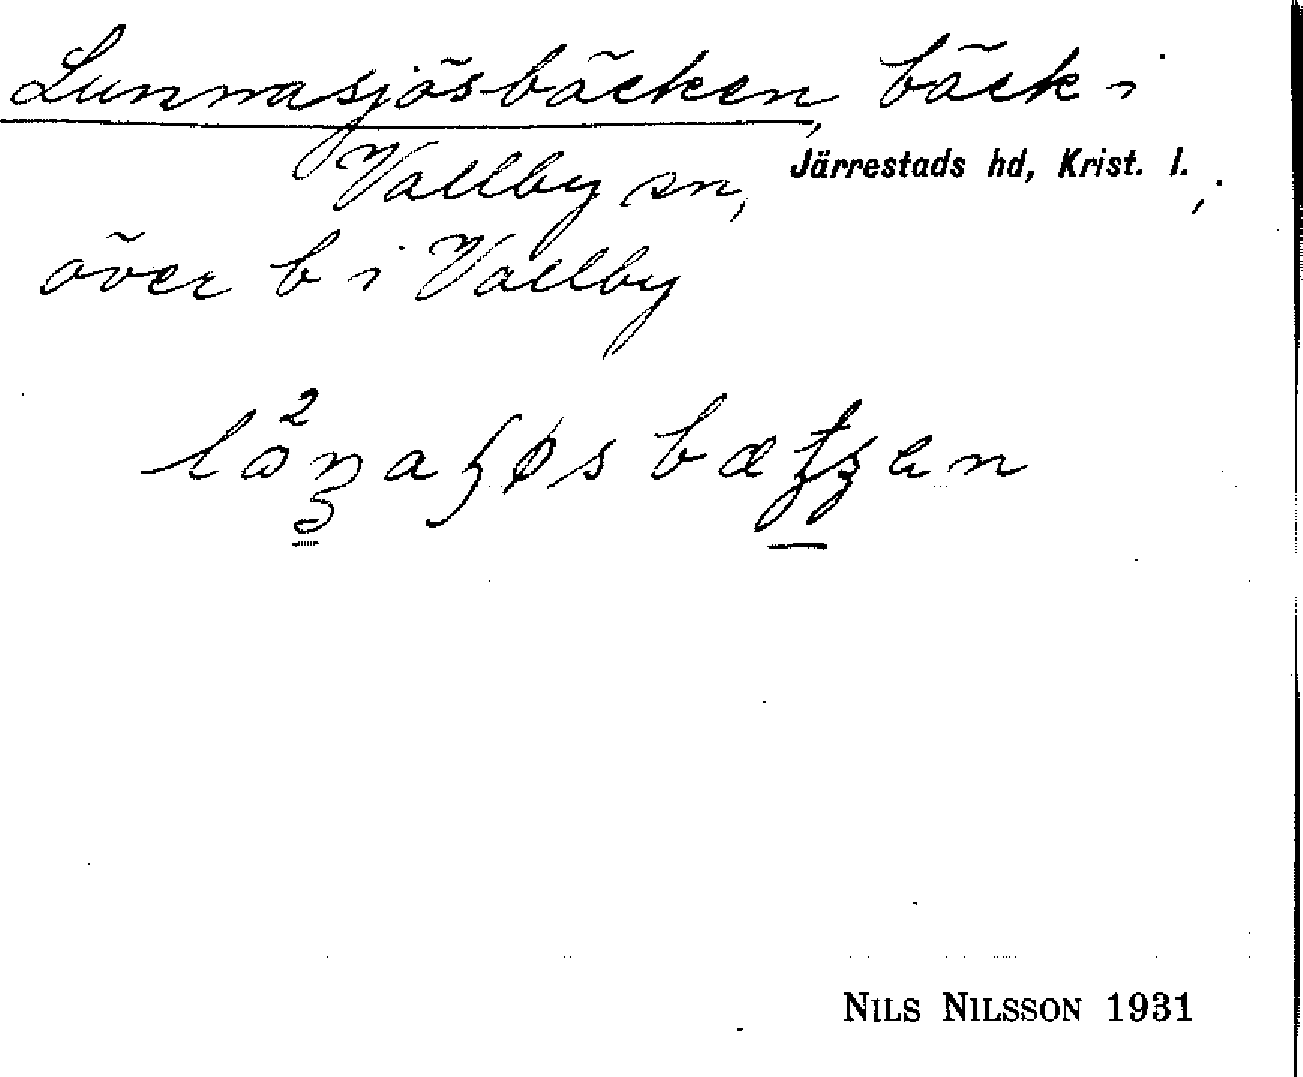 Lunnasjösbäcken, bäck i
Vallby sn, Järrestads hd, Krist. l.,;
över b i Vallby
NILS NILSSON 1931